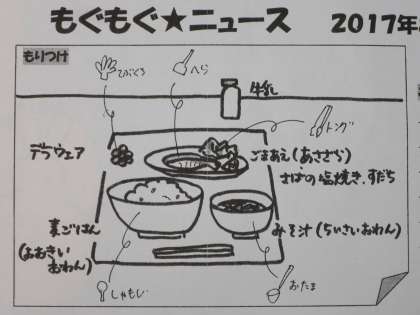 もぐもぐ★ニュース 2017年
もりつけ
てぶくろ
へら
牛乳
トング
デラウェア
ごまあえ(あさざら)
さばの塩焼き、すだち
麦ごはん
(おおきいおわん)
みそ汁(ちいさいおわん)
しゃもじ
おたま